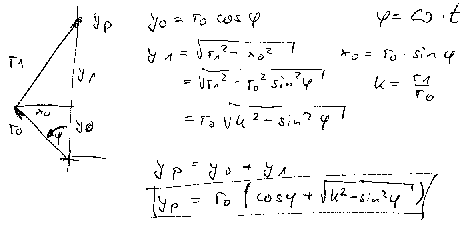 yp
r1
y1
x0
r0
φ
y0
y0 = r0 cos φ
φ = ω · t
y1 = √r1² - x0²
x0 = r0 · sin φ
= √r1² - r0² sin²φ
k = r1/r0
= r0 √k² - sin²φ
yp = y0 + y1
yp = r0 (cosφ + √k² - sin²φ)